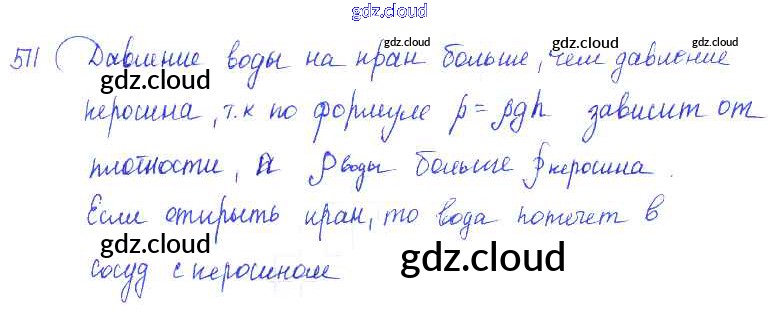 gdz.cloud
511) Давление воды на кран больше, чем давление
gdz.cloud
gdz.cloud
gdz.cloud
керосина, т.к по формуле p = ρgh зависит от
gdz.cloud
gdz.cloud
плотности, а ρ воды больше ρ керосина.
Если открыть кран, то вода потечет в
gdz.cloud
gdz.cloud
сосуд с керосином